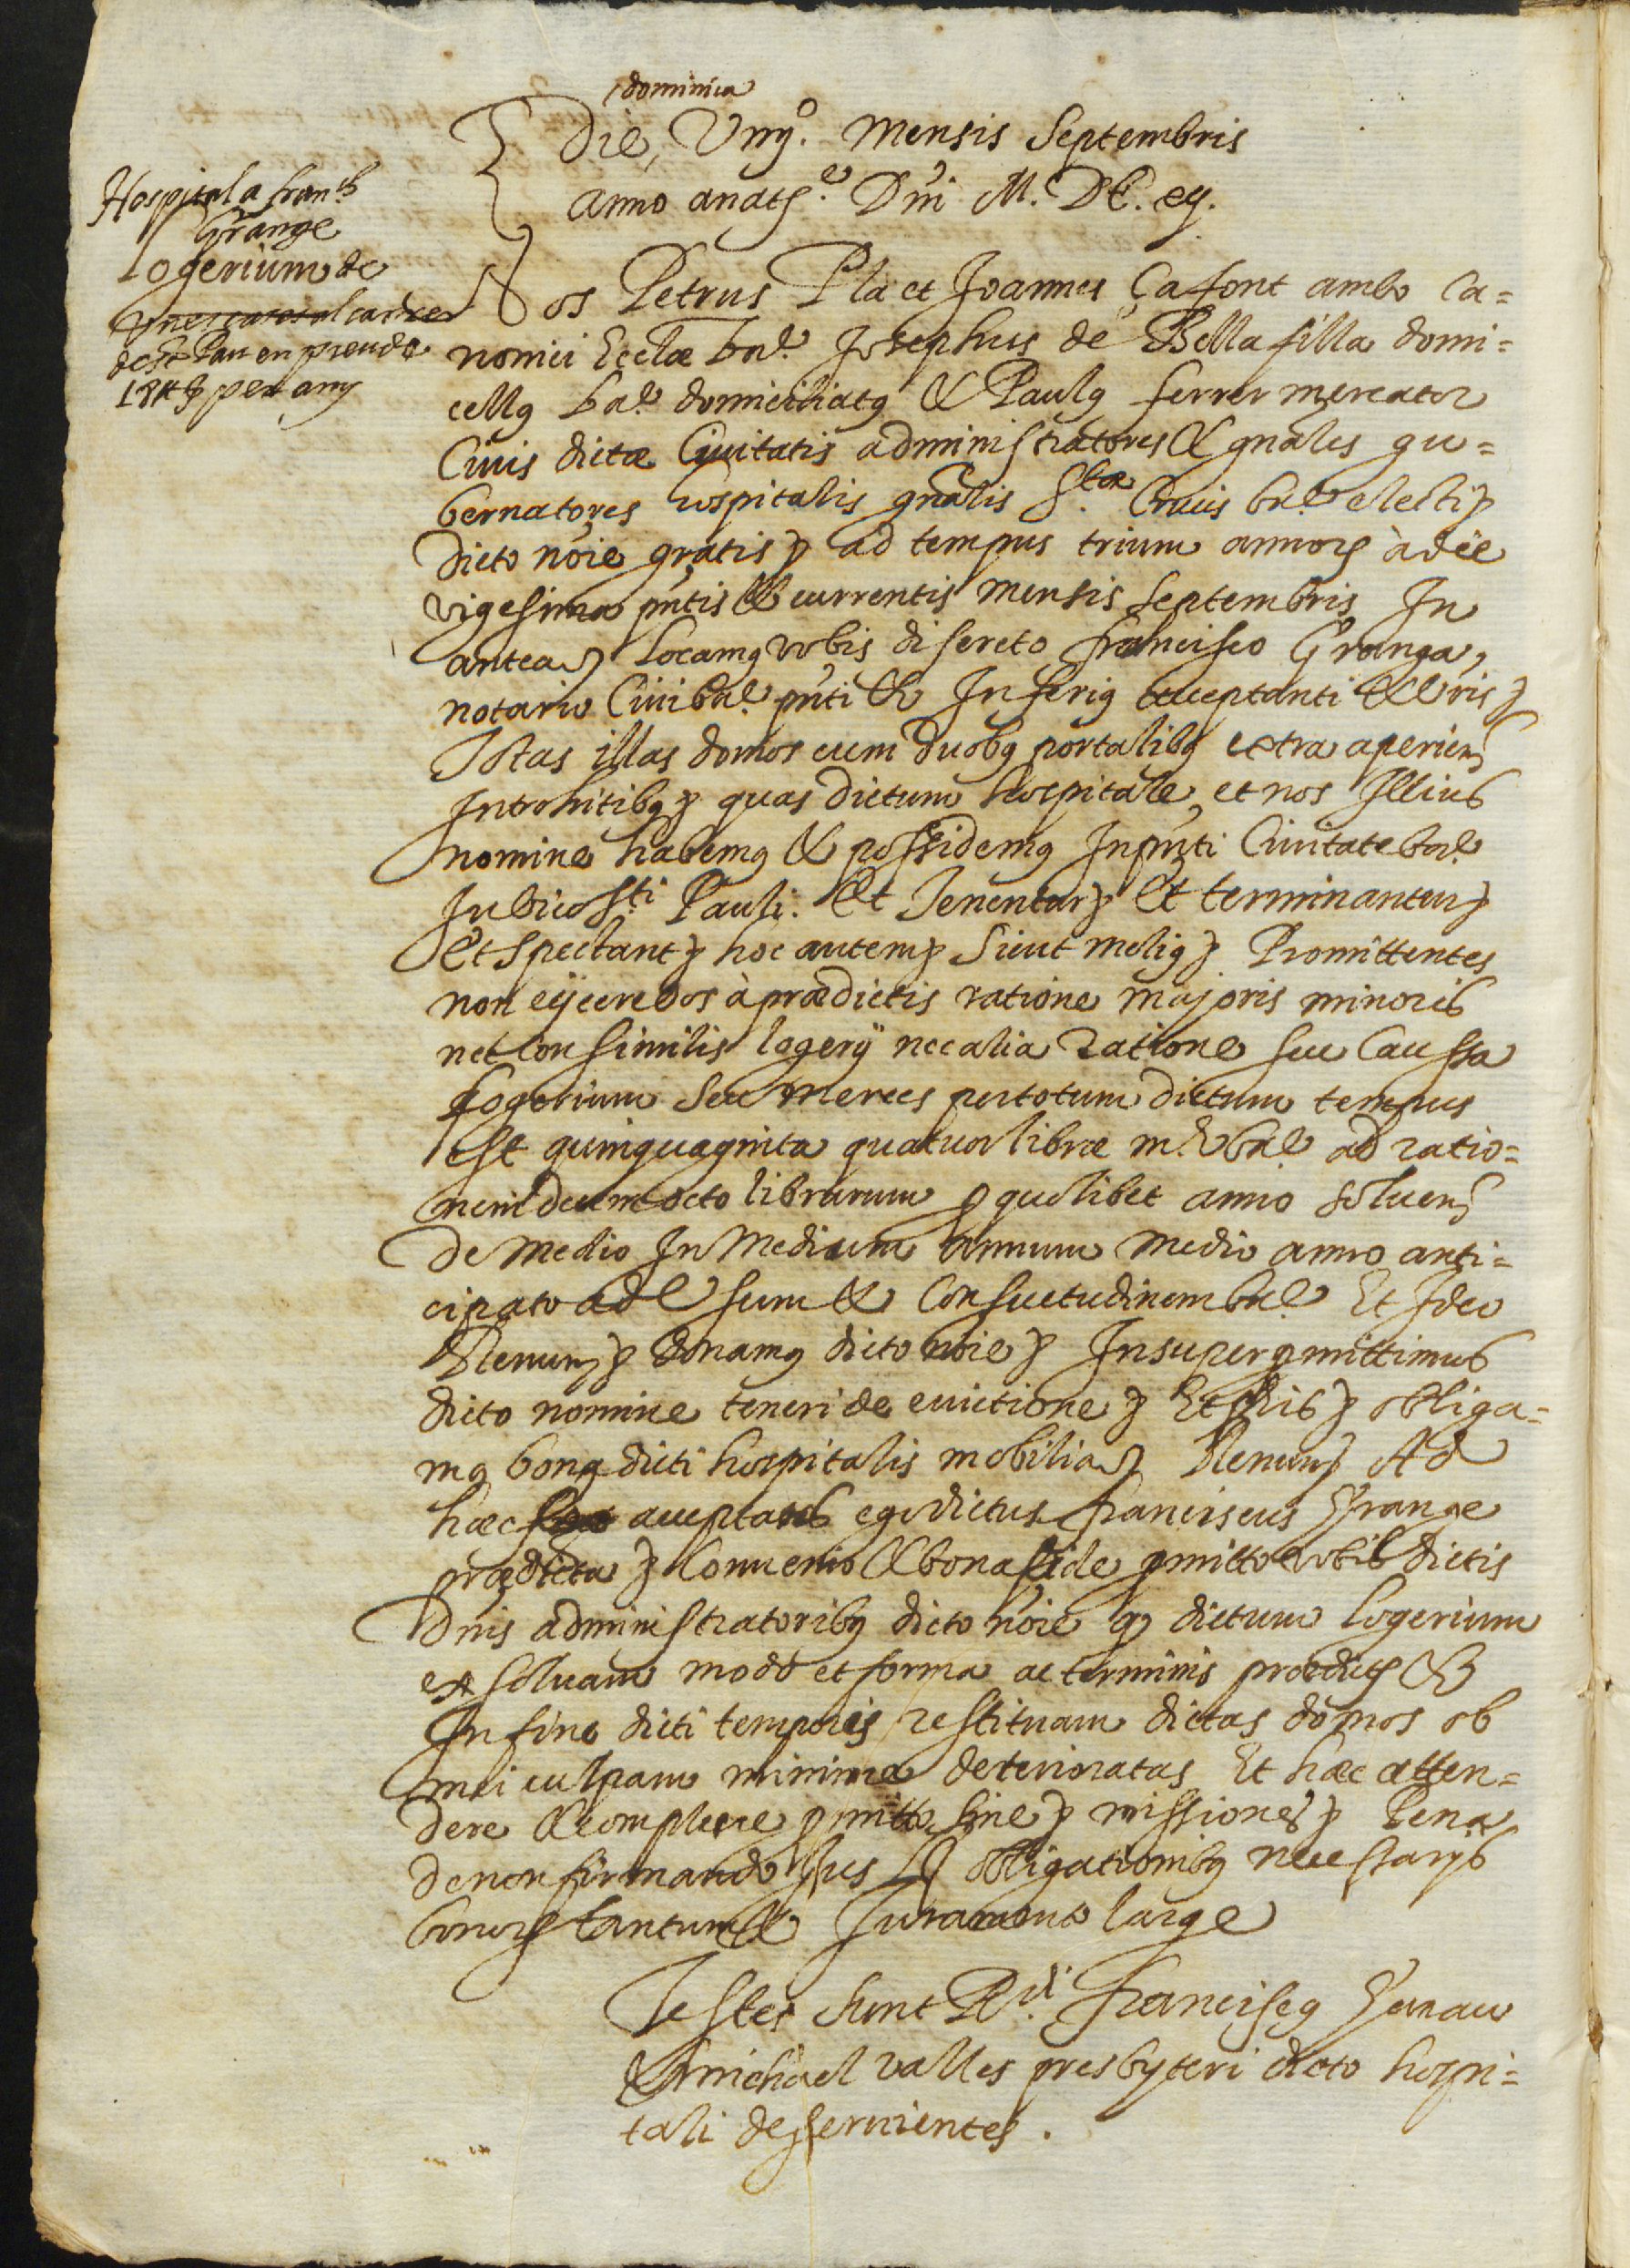 dominica
Die, Viijº. Mensis Septembris
anno a natte. Dni M. DC. ij.
Hospital a franch
Grange
Logerium de
unes cases al carrer
de st Pau en preu de
18 ll per any
Nos Petrus Pla et Joannes Çafont ambo Ca=
nonici Ecclæ bar. Josephus de Bellafilla domi=
cellus bar. domiciliatus & Paulus ferrer mercator
Civis dictæ Civitatis administratores & gnales gu=
bernatores hospitalis gnalis Stæ Crucis bar. electi
dicto noie gratis ad tempus trium annorum à die
vigesima pntis & currentis mensis Septembris In
antea Locamus vobis discreto francisco Granga,
notario Civi bar. pnti & Inferius acceptanti & vris
Totas illas domos cum duobus portalibus extra aperien
Introhitibus quas dictum hospitale, et nos Illius
nomine habemus & possidemus In pnti Civitate bar.
In vico Sti Pauli. Et Tenentur Et terminantur
Et spectant hoc autem Sicut melius Promittentes
non eijcere vos à prædictis ratione majoris minoris
nec consimilis logerij nec alia ratione seu Caussa
Logerium seu merces per totum dictum tempus
est quinquaginta quatuor libræ m. bar. ad ratio=
nem decem octo librarum p quolibet anno soluen
de medio In Medium annum medio anno anti=
cipato ad Usum & Consuetudinem bar. Et Ideo
Renun donamus dicto noie Insuper pmittimus
dicto nomine teneri de evictione Et pro his obliga=
mus bona dicti hospitalis mobilia Renun Ad
hæc acceptans ego dictus franciscus Grange
prædicta Convenio & bona fide pmitto vobis dictis
Dnis administratoribus dicto noie q dictum logerium
exsolvam modo et forma ac terminis prædictis &
In fine dicti temporis restituam dictas domos ob
mei culpam minime deterioratas Et hæc atten=
dere & complere pmitto sine missiones Pena
de non firmando Jus obligationibus necessarijs
bonorum tantum & Juramento large
Testes sunt Rdi. franciscus Granau
& michael valles presbyteri dicto hospi=
tali desservientes.